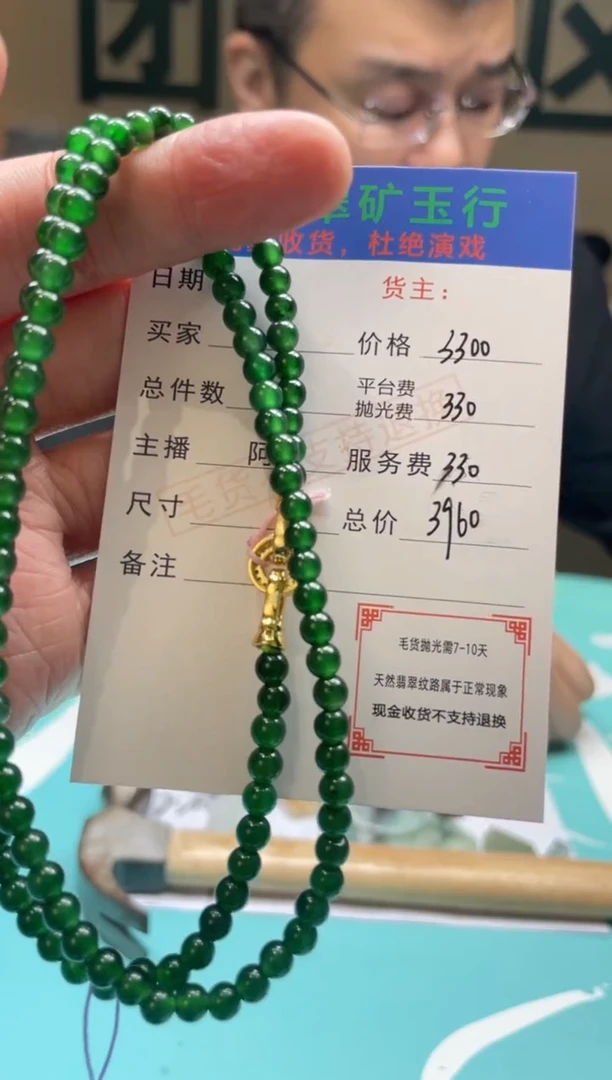 团 区
翠矿玉行
收货，杜绝演戏
日期 货主：
买家 价格 3300
总件数 平台费
抛光费 330
主播 阿 服务费 330
尺寸 总价 3960
备注
毛货 支持退换
毛货抛光需7-10天
天然翡翠纹路属于正常现象
现金收货不支持退换